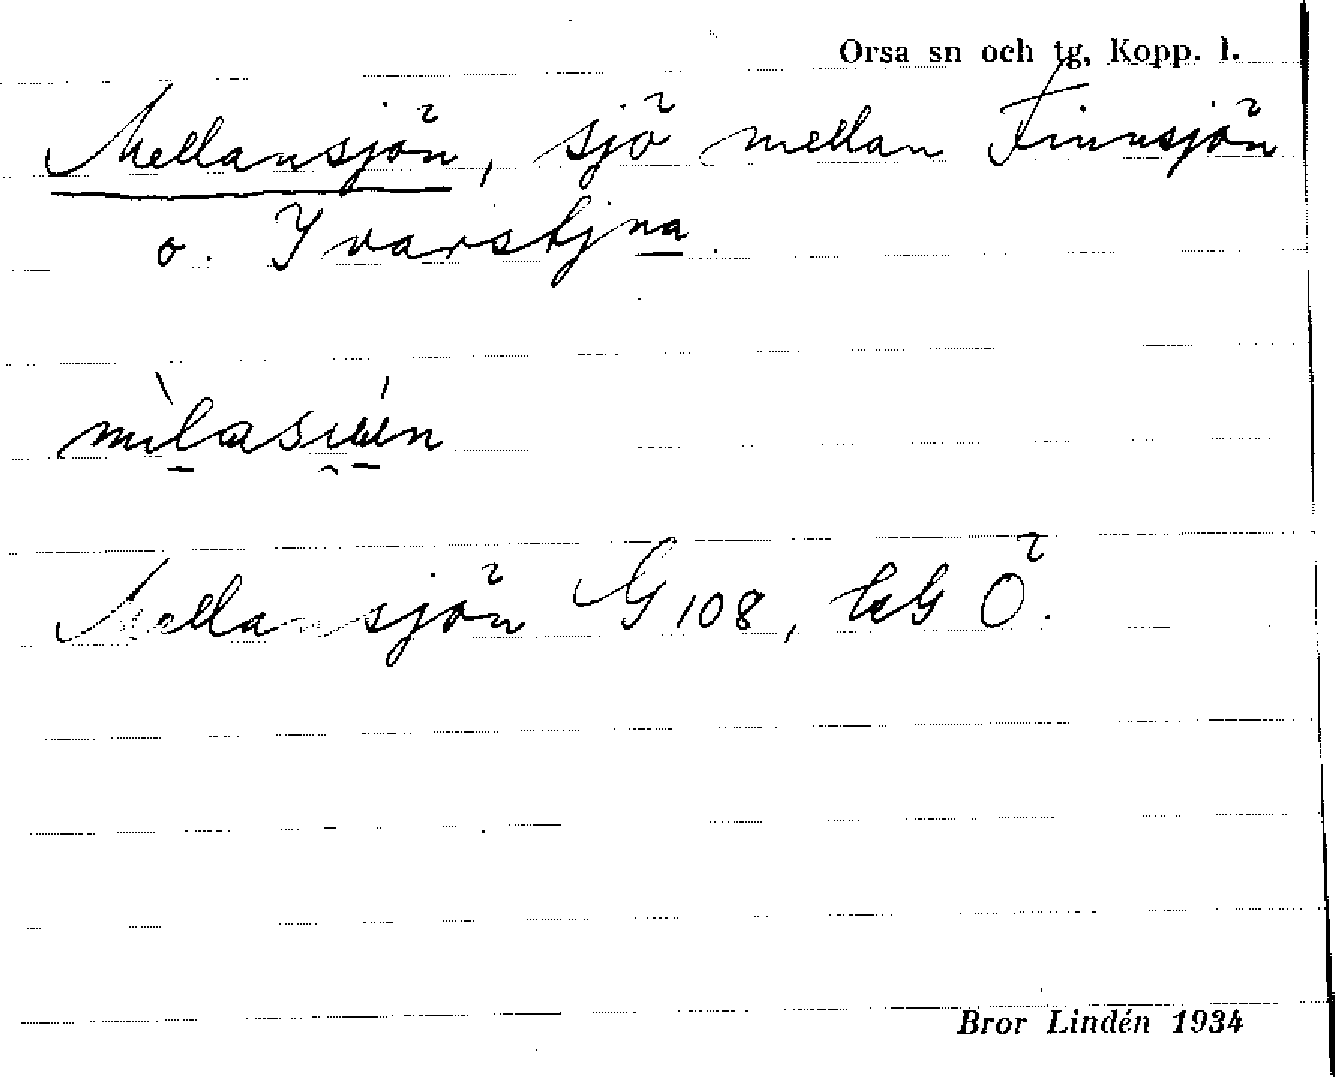 Orsa sn och tg, Kopp. l.
Mellansjön, sjö mellan Finnsjön
o. Ivarstjna.
Mellansjön G 108, Ö.
Bror Lindén 1934